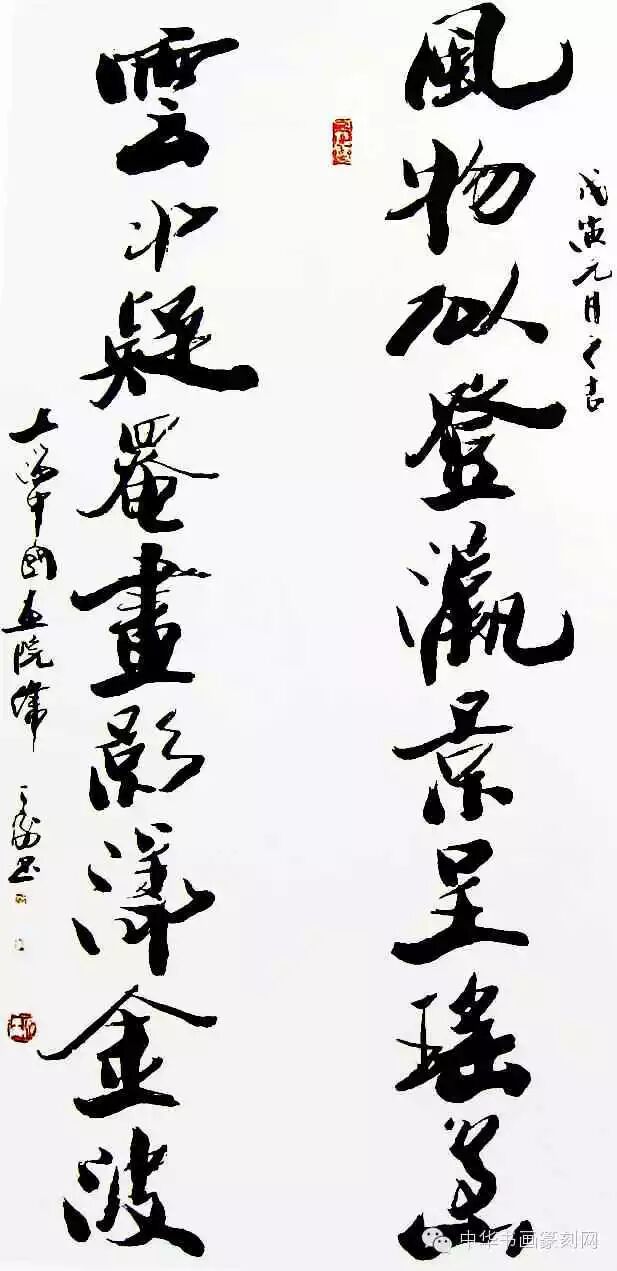 戊寅元月之吉
風物似登瀛景呈瑤島
雲水疑罨畫影漾金波
上海中國畫院
中华书画篆刻网